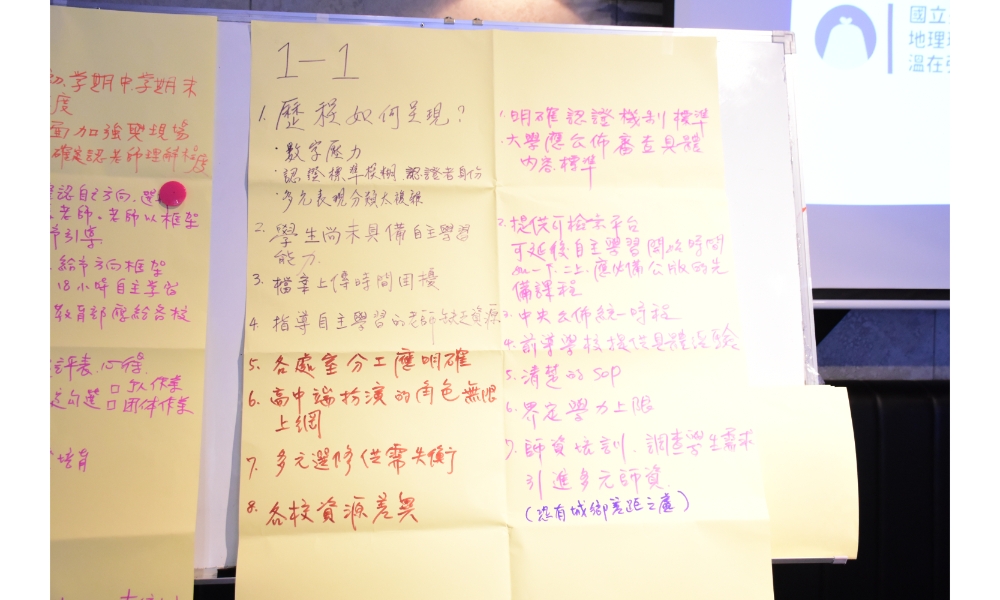 學期中.學期末
度
面加強與現場
確定認老師理解程度
認自己方向.選
老師。老師以框架
引導
給市方向框架
18小時自主學習
教育部應給各校
評表.心得.
勾選口個人作業
口團体作業
培育
1-1
1. 歷程如何呈現？
·數字壓力
·認證標準模糊 認證者身份
·多元表現分類太複雜
2. 學生尚未具備自主學習
能力.
3. 檔案上傳時間困擾
4. 指導自主學習的老師缺乏資源
5. 各處室分工應明確
6. 高中端扮演的角色無限
上綱
7. 多元選修供需失衡
8. 各校資源差異
·明確認證機制標準
·大學應公佈審查具體
內容.標準
2. 提供可檢索平台
可延後自主學習開始時間
高一下.二上.應必備公版的先
備課程
3. 中央公佈統一時程
4. 前導學校提供具體經驗
5. 清楚的SOP
6. 界定學力上限
7. 師資培訓.調查學生需求
引進多元師資.
(恐有城鄉差距之慮)
國立
地理
溫在